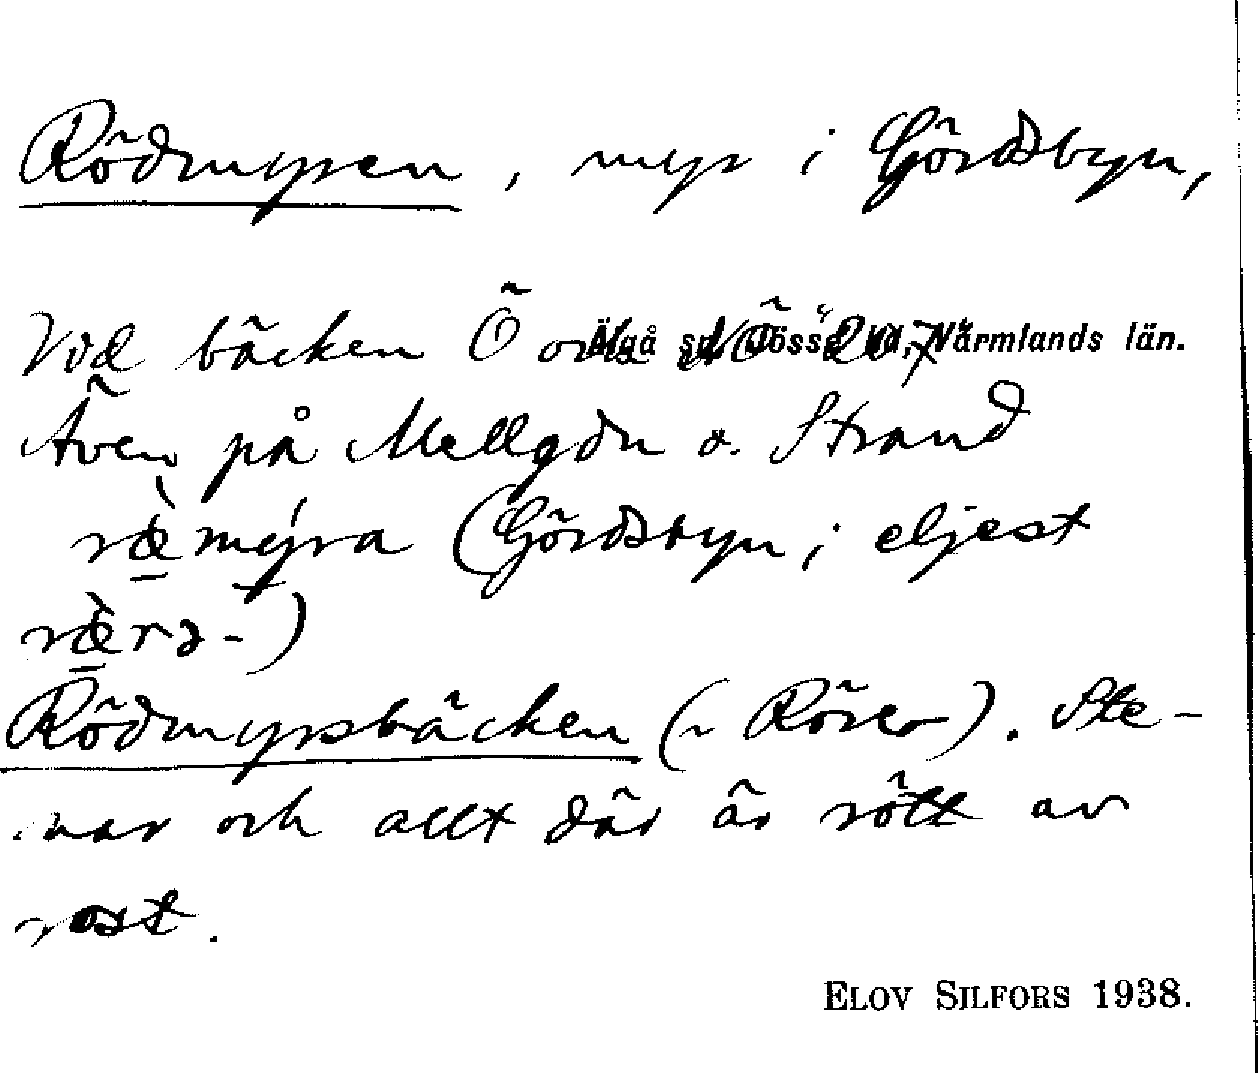 Rödmyren, myr i Gördsbyn,
Vid bäcken Ö om NÖ 207
Älgå sn, Jösse hd, Värmlands län.
Även på Mellgdn o. Strand
ræ̀mýra (Gördsbyn; eljest
ræ̀rə-)
Rödmyrsbäcken (~ Rörer). Ste-
nar och allt där är rött av
rost.
ELOV SILFORS 1938.